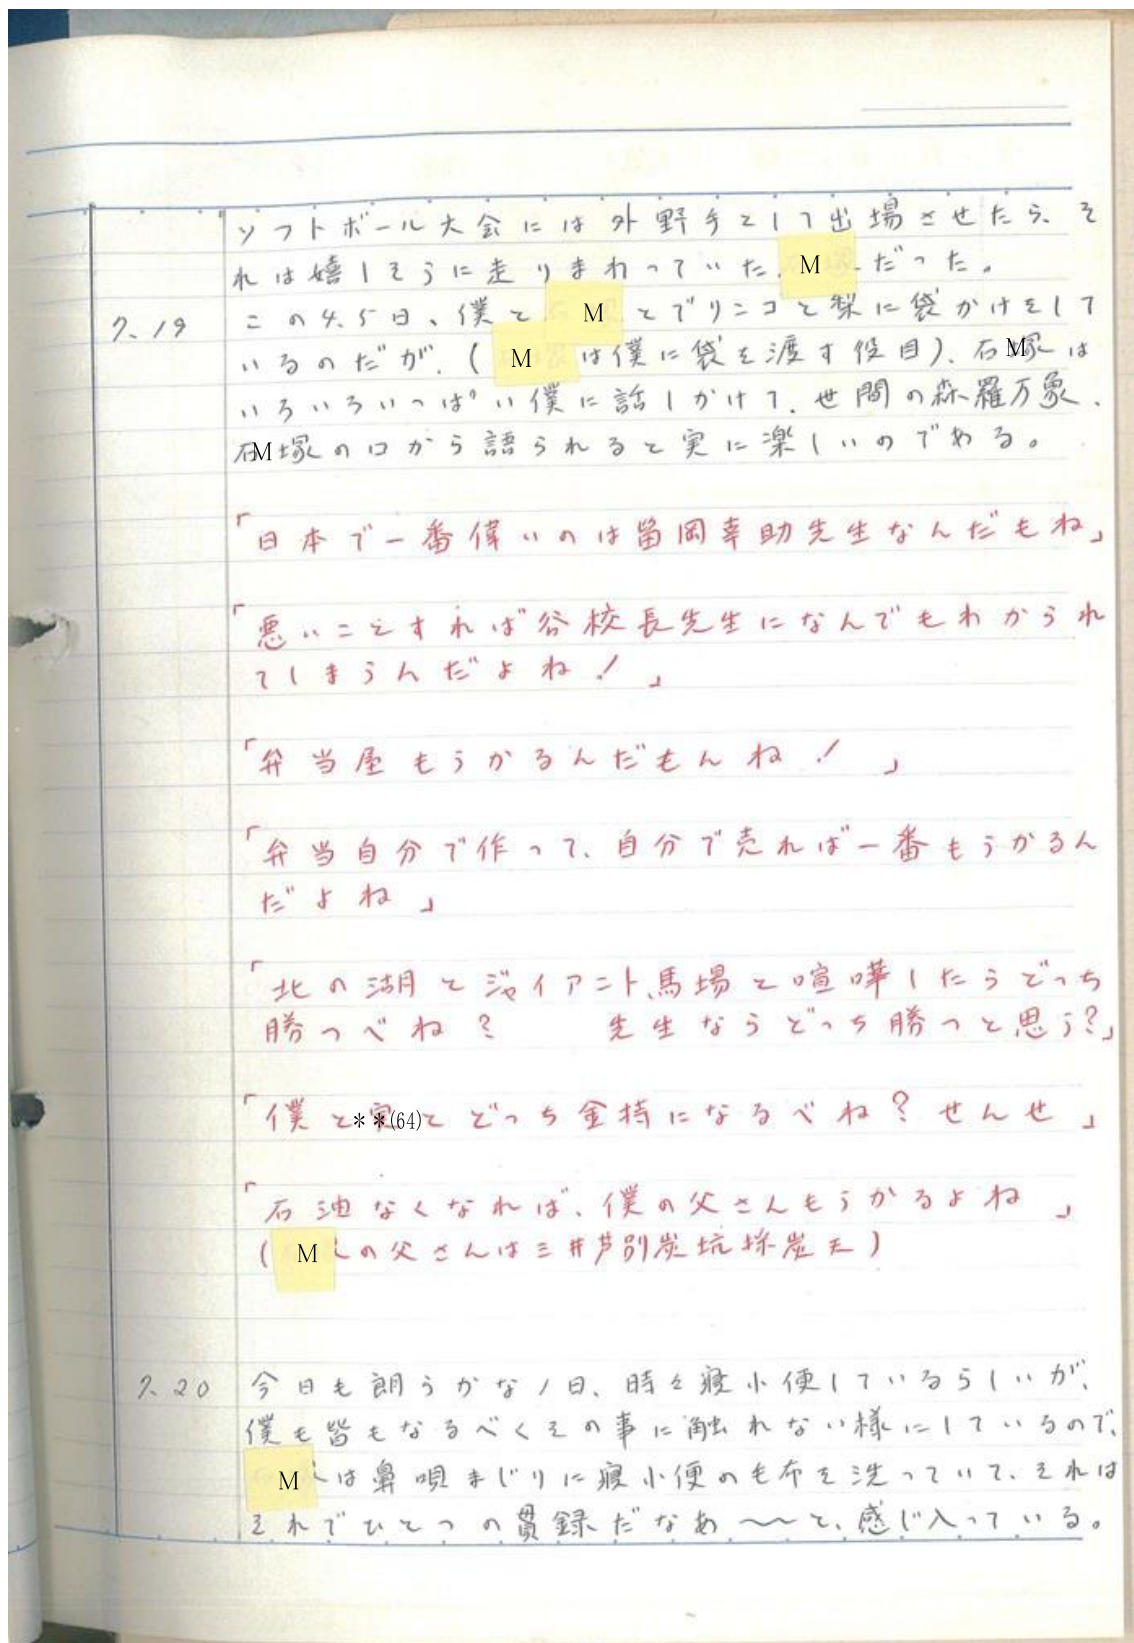 ソフトボール大会には外野手として出場させたら、そ
れは嬉しそうに走りまわっていた、Mだった。
7.19 この4.5日、僕とMとでリンゴと梨に袋かけをして
いるのだが、(Mは僕に袋を渡す役目)、Mは
いろいろいっぱい僕に話しかけて、世間の森羅万象、
Mの口から語られると実に楽しいのである。
「日本で一番偉いのは留岡幸助先生なんだもね」
「悪いことすれば谷校長先生になんでもわかられ
てしまうんだよね!」
「弁当屋もうかるんだもんね!」
「弁当自分で作って、自分で売れば一番もうかるん
だよね」
「北の湖とジャイアント馬場と喧嘩したらどっち
勝つべね? 先生ならどっち勝つと思う?」
「僕と**(64)とどっち金持になるべね?せんせ」
「石油なくなれば、僕の父さんもうかるよね」
(Mの父さんは三井芦別炭坑採炭夫)
7.20 今日も朗らかな1日、時々寝小便しているらしいが、
僕も皆もなるべくその事に触れない様にしているので、
Mは鼻唄まじりに寝小便の毛布を洗っていて、それは
それでひとつの貫録だなあ〜〜と、感じ入っている。